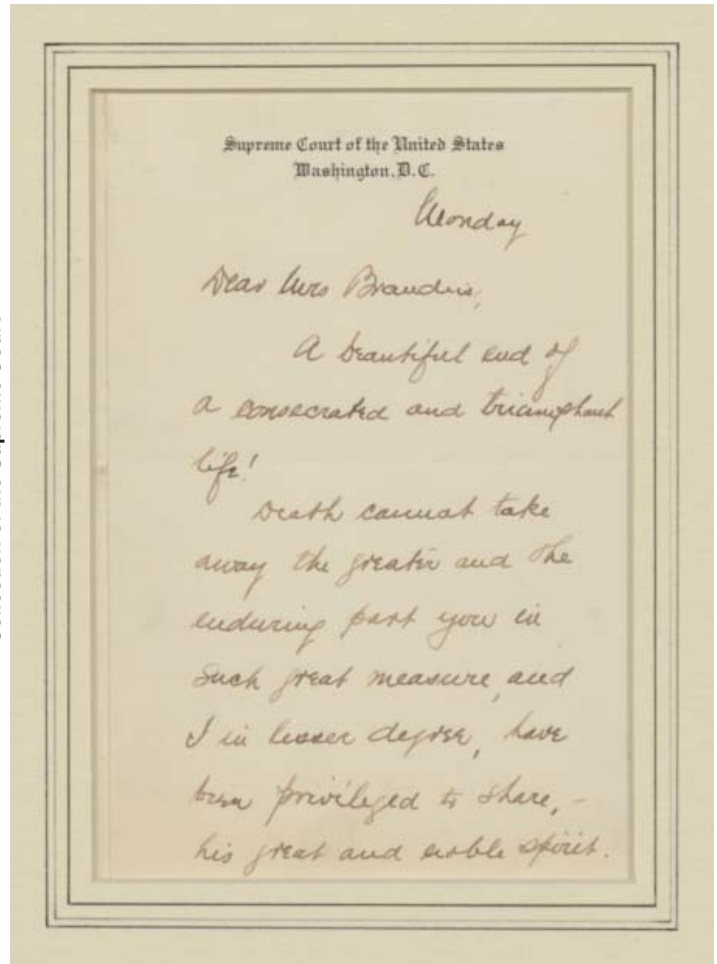 Supreme Court of the United States
Washington, D.C.
Monday
Dear Mrs Brandeis,
A beautiful end of
a consecrated and triumphant
life!
Death cannot take
away the greater and the
enduring part you in
such great measure, and
I in lesser degree, have
been privileged to share, –
his great and noble spirit.